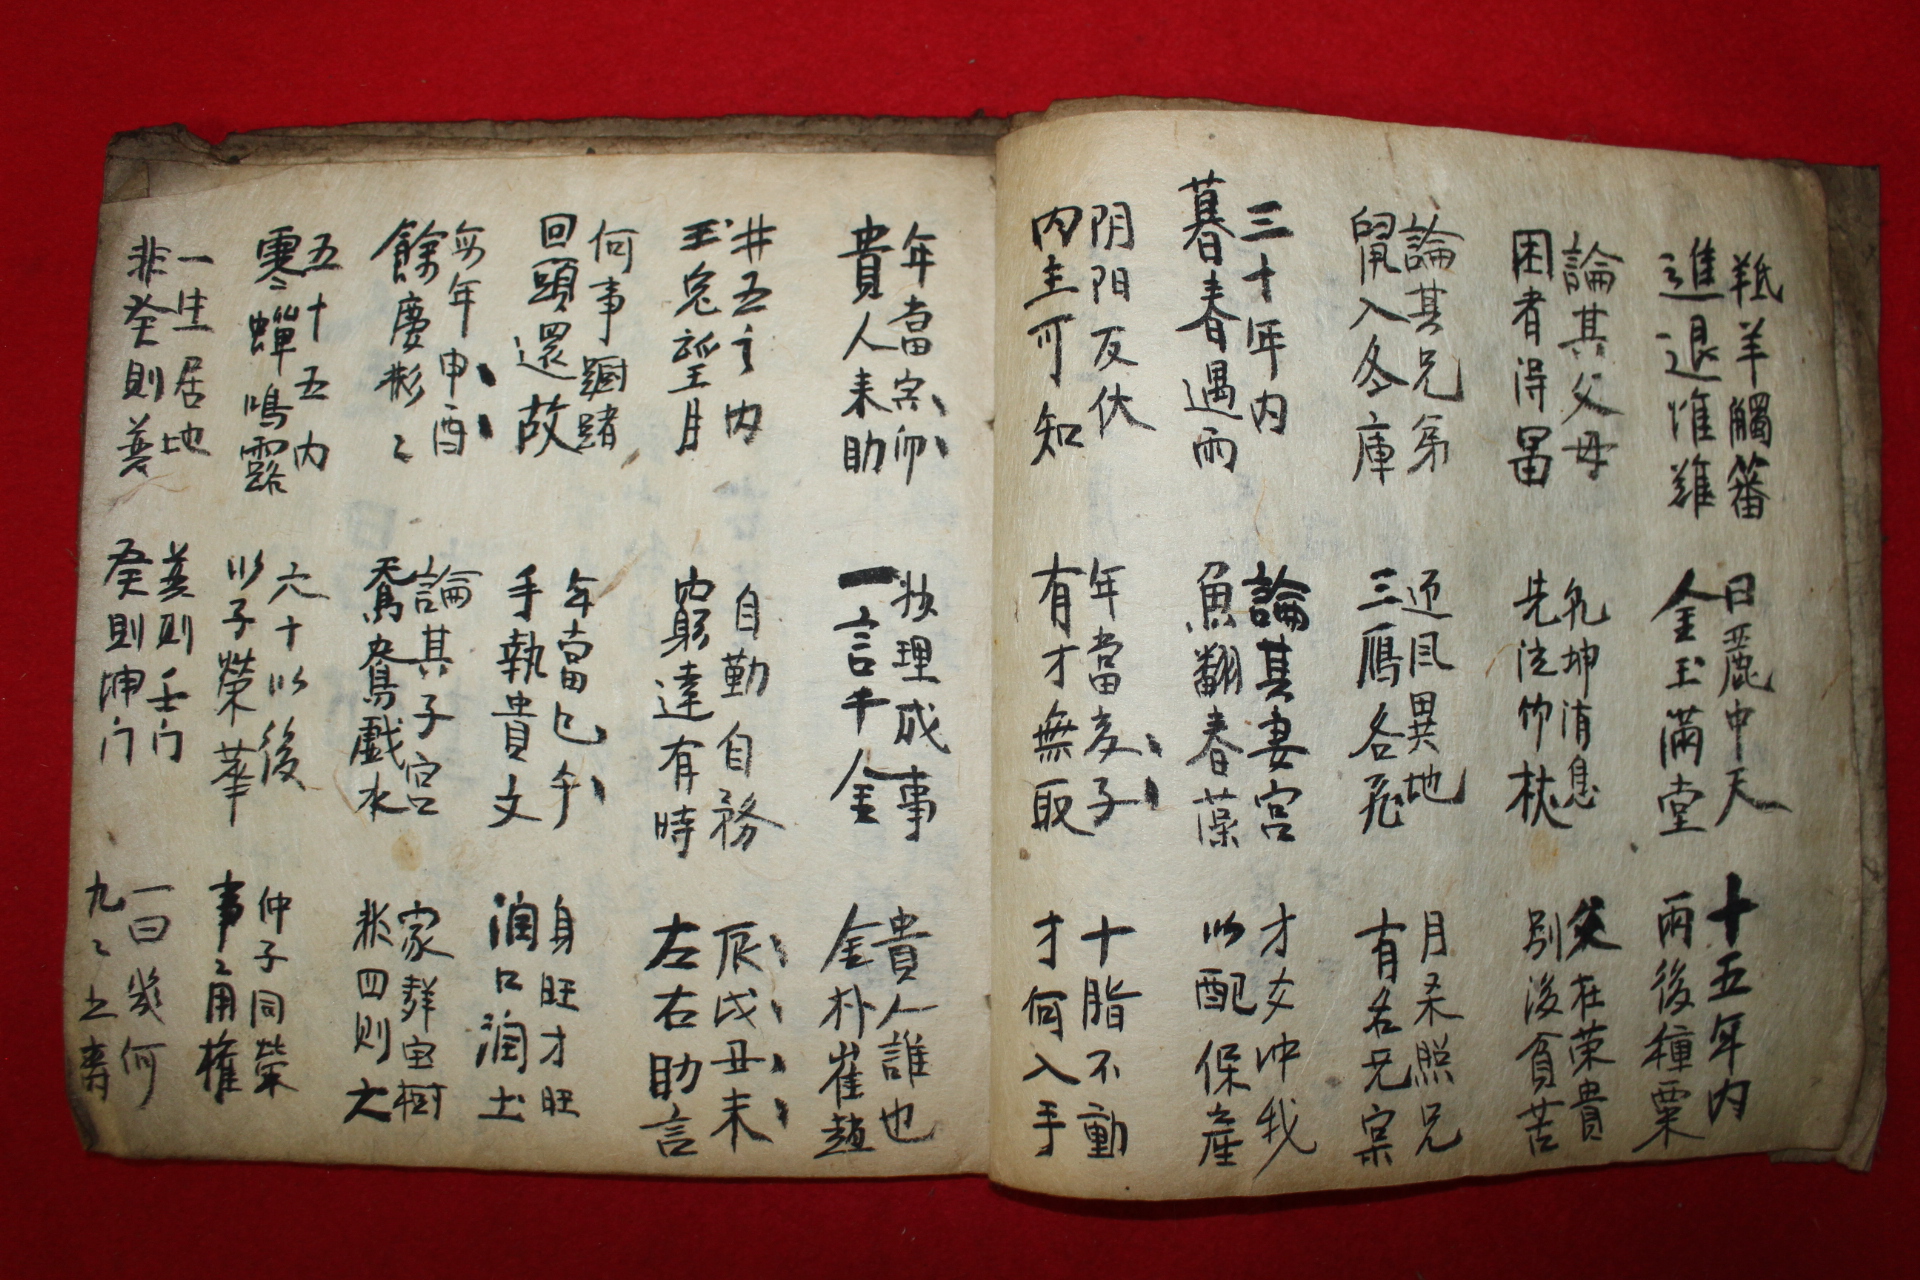 羝羊觸藩
進退惟難
日麗中天
金玉滿堂
十五年内
雨後種粟
論其父母
困者得
坤消息
先泣竹杖
父在荣貴
別後貧苦
論其兄弟
入冬庫
迎風異地
三鴈各飛
月未照兄
有名兄
三十年内
暮春遇雨
論其妻宮
魚翻春藻
才女冲我
以配保産
阴阳反伏
内主可知
年當亥子
有才無取
十脂不動
才何入手
年當寅卯
貴人来助
理成事
一言千金
貴人誰也
金朴崔趙
卄五之内
玉兎望月
自勤自務
窮達有時
辰戌丑未
左右助言
何事躕躇
回頭還故
年當巳午
手執貴文
身旺才旺
润口润土
每年申酉
餘慶彬〻
論其子宮
鴛鴦戲水
家群宝樹
非四則六
五十五内
寒蟬鳴露
六十以後
以子榮華
仲子同榮
事〻用權
一生居地
非癸則姜
姜則壬门
癸則坤门
一曰 何
九〻之壽